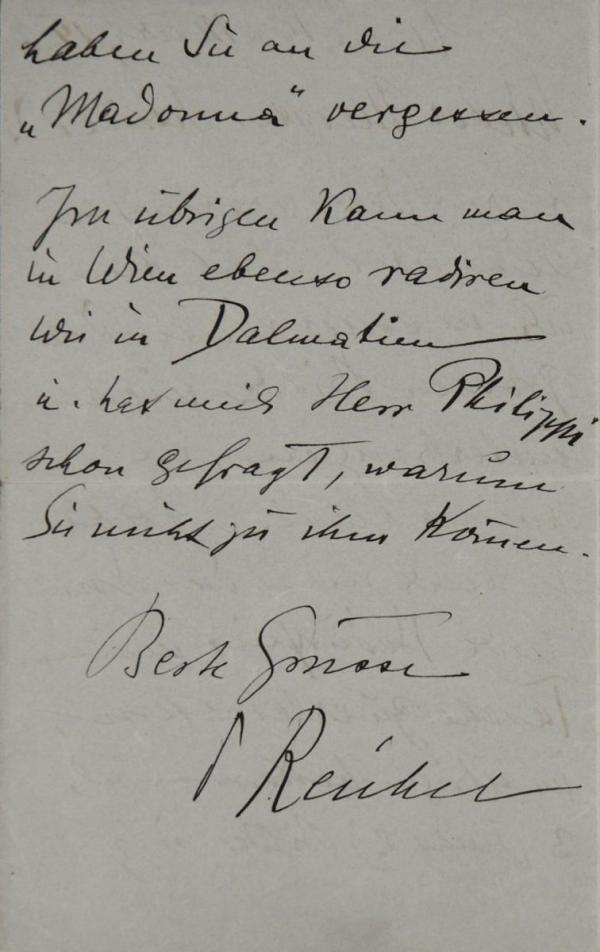 haben Sie an die
„Madonna“ vergessen.
Im übrigen kann man
in Wien ebenso radiren
wie in Dalmatien
u. hat mich Herr Philippi
schon gefragt, warum
Sie nicht zu ihm kom̄en.
Beste Grüsse
Reichel